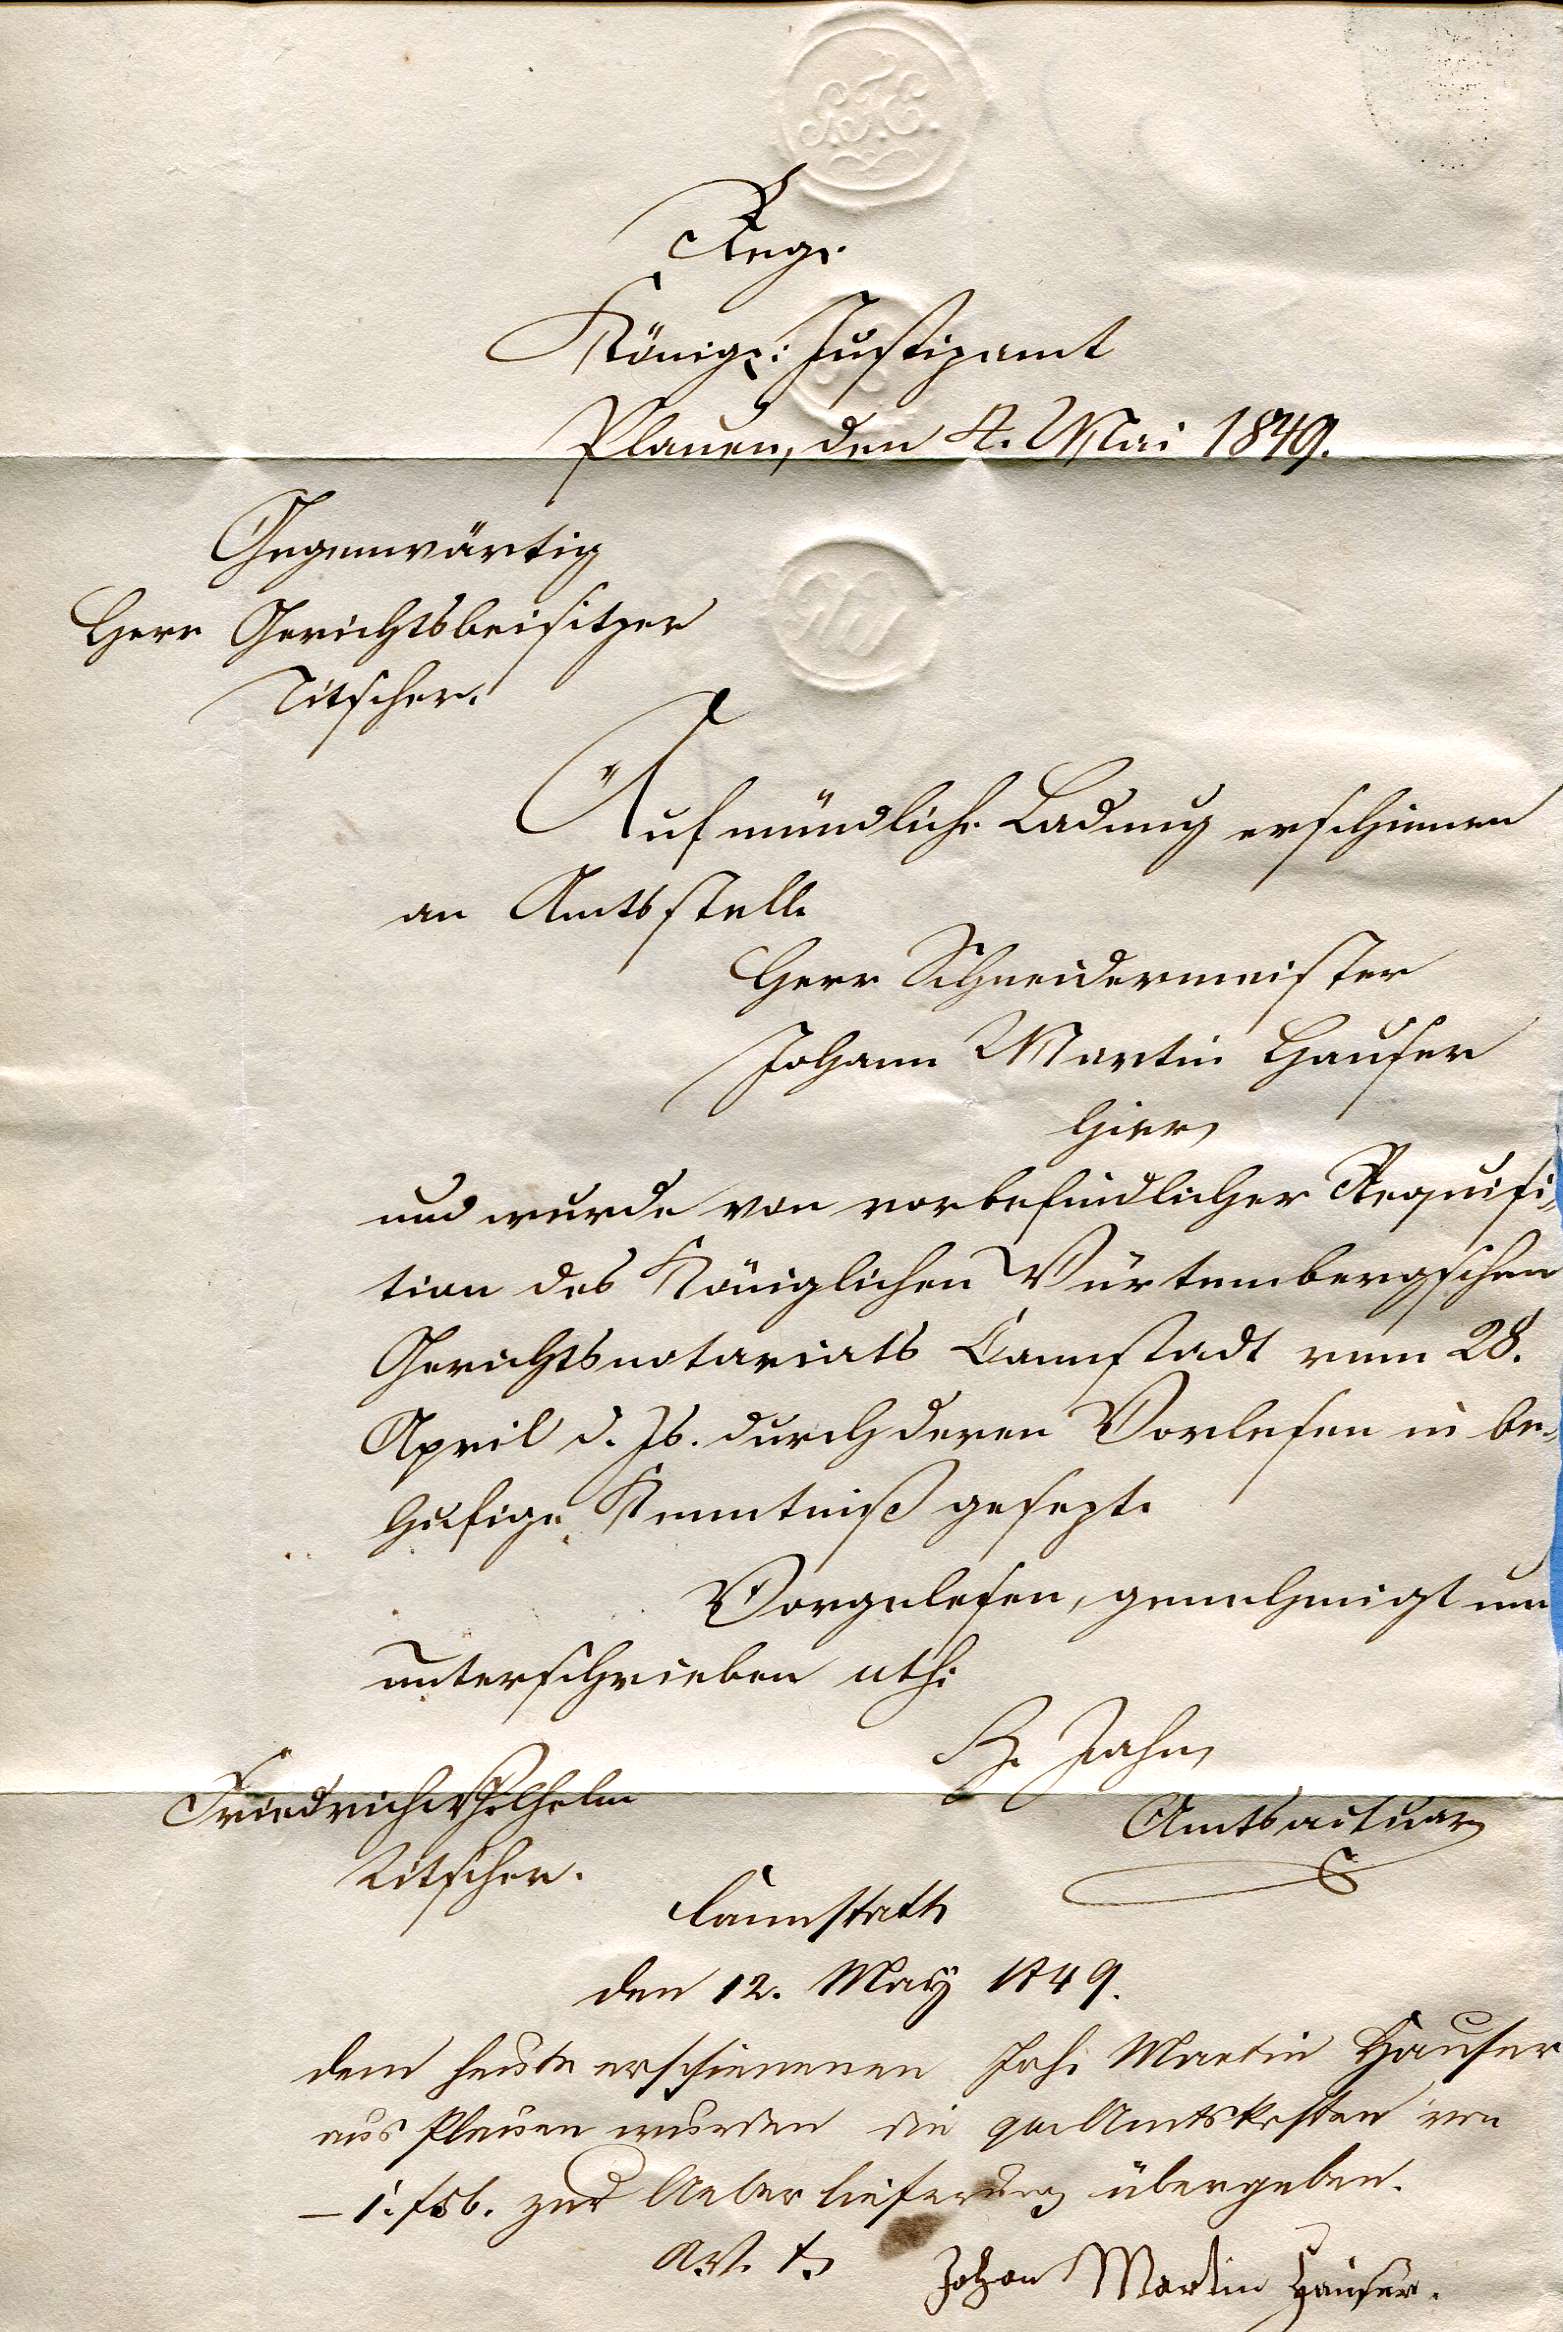 S.F.E.
Reg:
Königl: Justizamt
Plauen, den 4. Mai 1849.
Gegenwärtig
Herr Gerichtsbeisitzer
Titscher.
Auf mündliche Ladung erschienen
an Amtsstelle
Herr Schneidermeister
Johann Martin Hauser
hier,
und wurde von vorbefindlicher Requisi-
tion des Königlichen Würtembergschen
Gerichtsnotariats Cannstadt vom 28.
April d. Js. durch deren Vorlesen in be-
hufige Kenntniß gesezt.
Vorgelesen, genehmigt und
unterschrieben
Jahn,
Friedrich Wilhelm
Amtsactuar
Titscher.
Cannstatt
den 12. May 1849.
dem heute erschienenen Joh. Martin Hauser
aus Plauen wurden die Amtskosten von
zur Ueberlieferung übergeben.
Johan Martin Hauser.